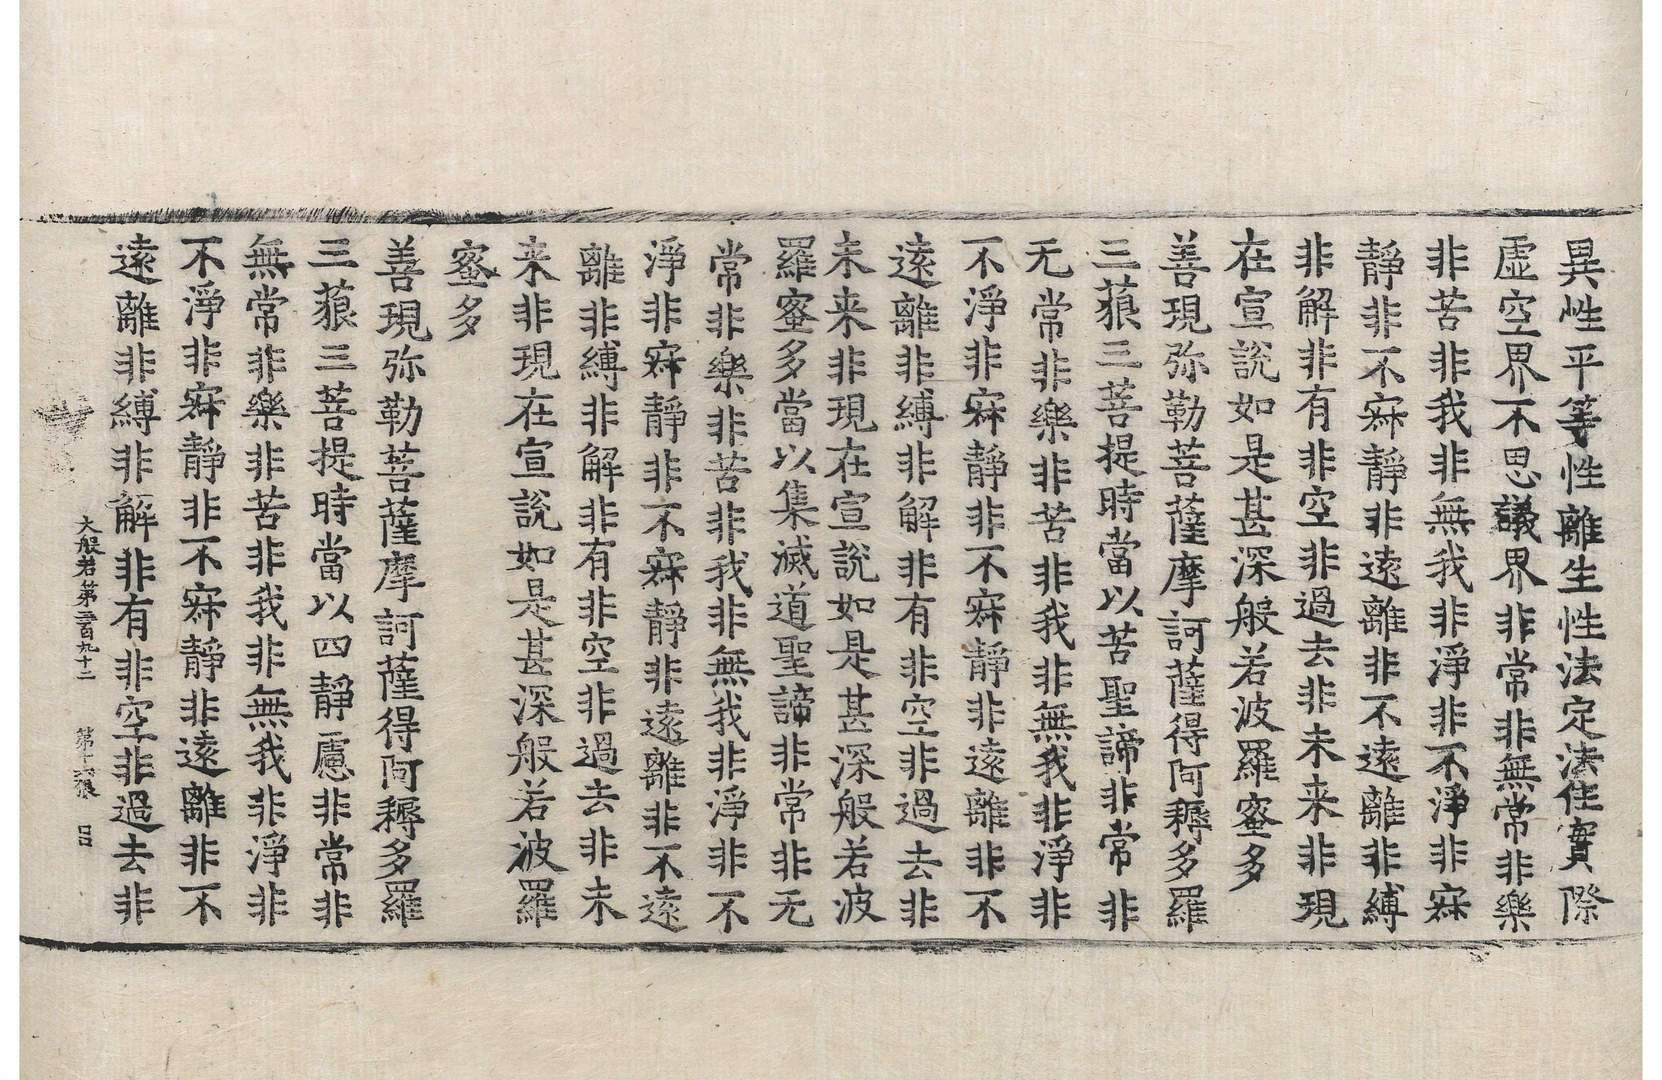 異性平等性離生性法定法住實際
虛空界不思議界非常非無常非樂
非苦非我非無我非淨非不淨非寂
靜非不寂靜非遠離非不遠離非縛
非解非有非空非過去非未来非現
在宣說如是甚深般若波羅蜜多
善現弥勒菩薩摩訶薩得阿耨多羅
三藐三菩提時當以苦聖諦非常非
无常非樂非苦非我非無我非淨非
不淨非寂靜非不寂靜非遠離非不
遠離非縛非解非有非空非過去非
未来非現在宣說如是甚深般若波
羅蜜多當以集滅道聖諦非常非无
常非樂非苦非我非無我非淨非不
淨非寂靜非不寂靜非遠離非不遠
離非縛非解非有非空非過去非未
来非現在宣說如是甚深般若波羅
蜜多
善現弥勒菩薩摩訶薩得阿耨多羅
三藐三菩提時當以四靜慮非常非
無常非樂非苦非我非無我非淨非
不淨非寂靜非不寂靜非遠離非不
遠離非縛非解非有非空非過去非
大般若第二百九十二 第十六張 呂